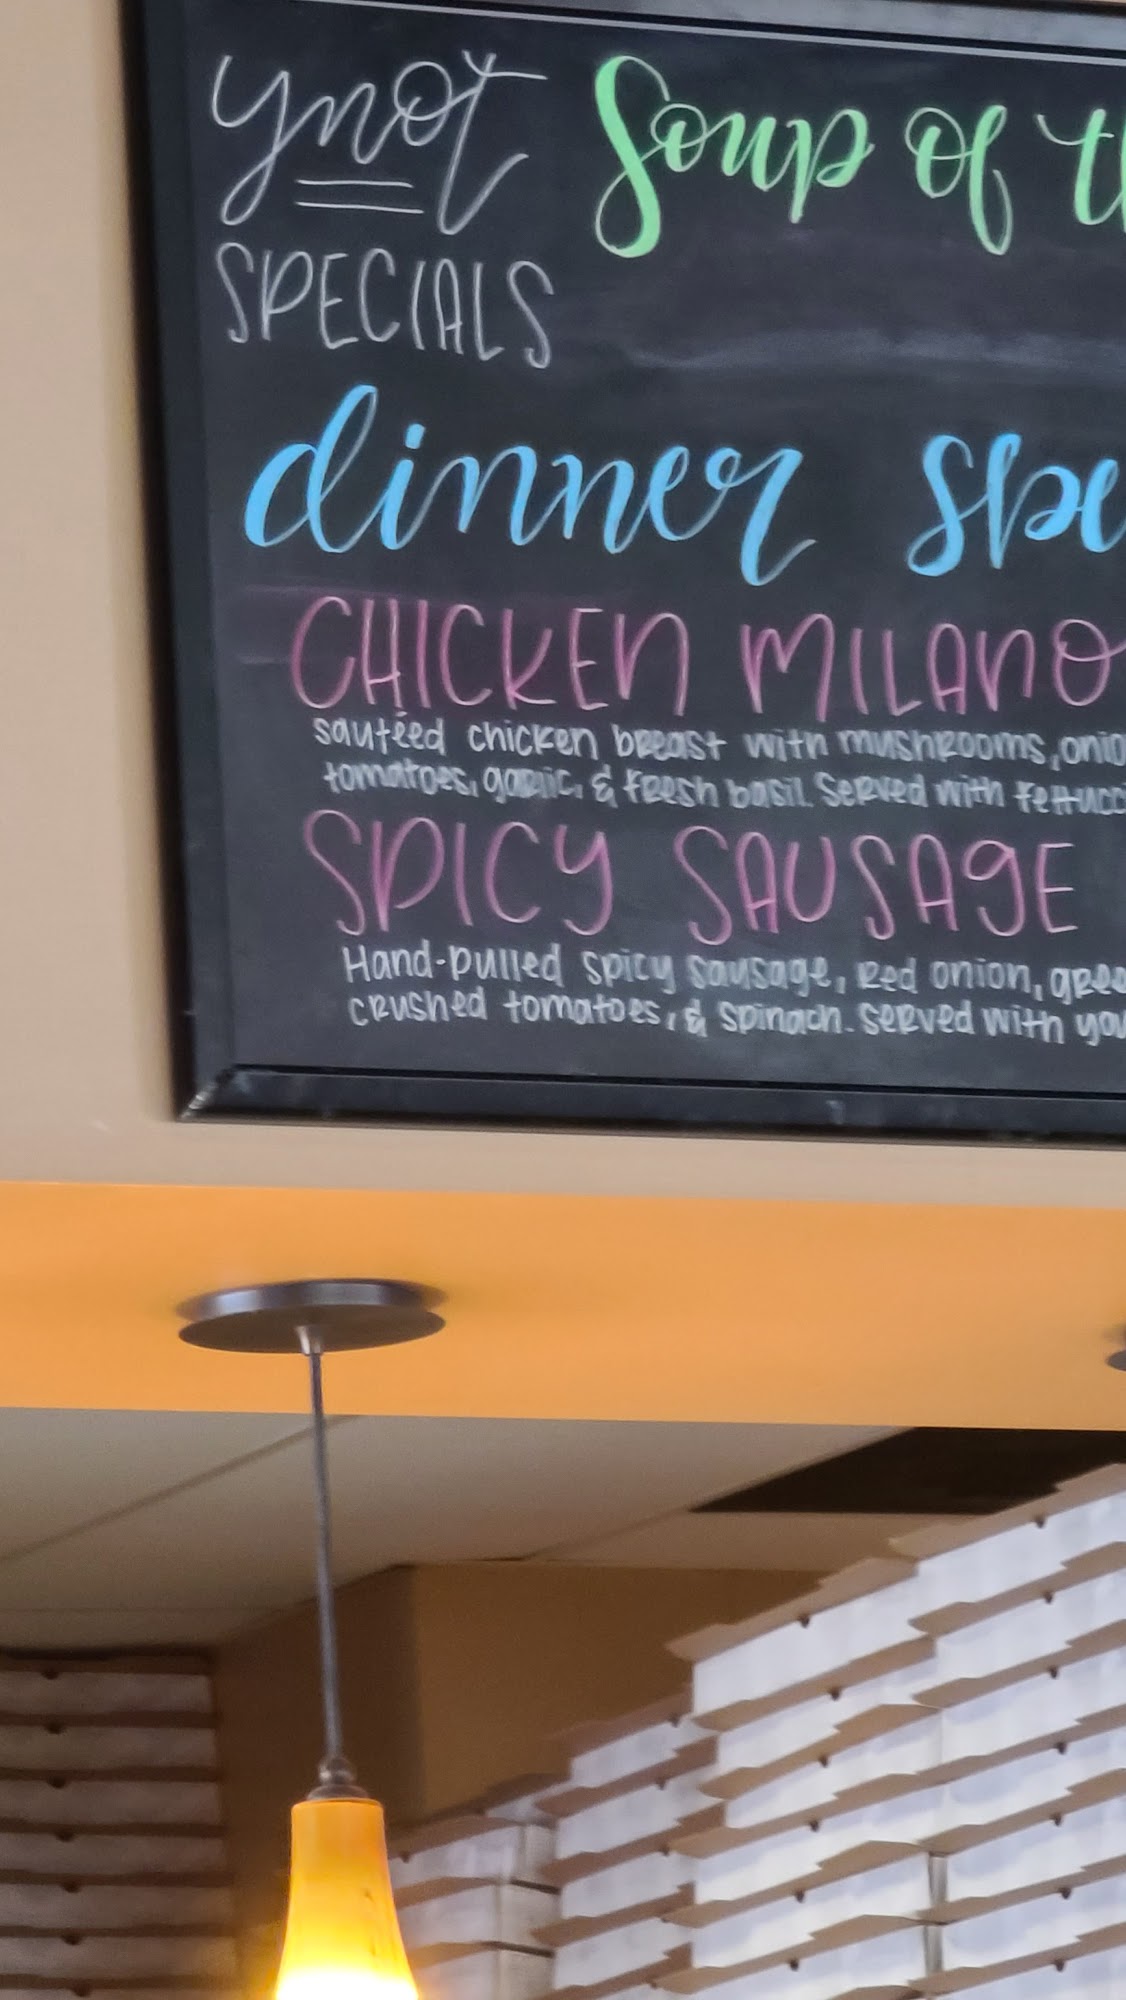 ynot
SPECIALS
Soup of t
dinner spe
CHICKEN MILANO
sautéed chicken breast with mushrooms, onio
tomatoes, garlic, & fresh basil. Served with fettucc
SPICY SAUSAGE
Hand-pulled spicy sausage, red onion, gree
crushed tomatoes, & spinach. Served with you